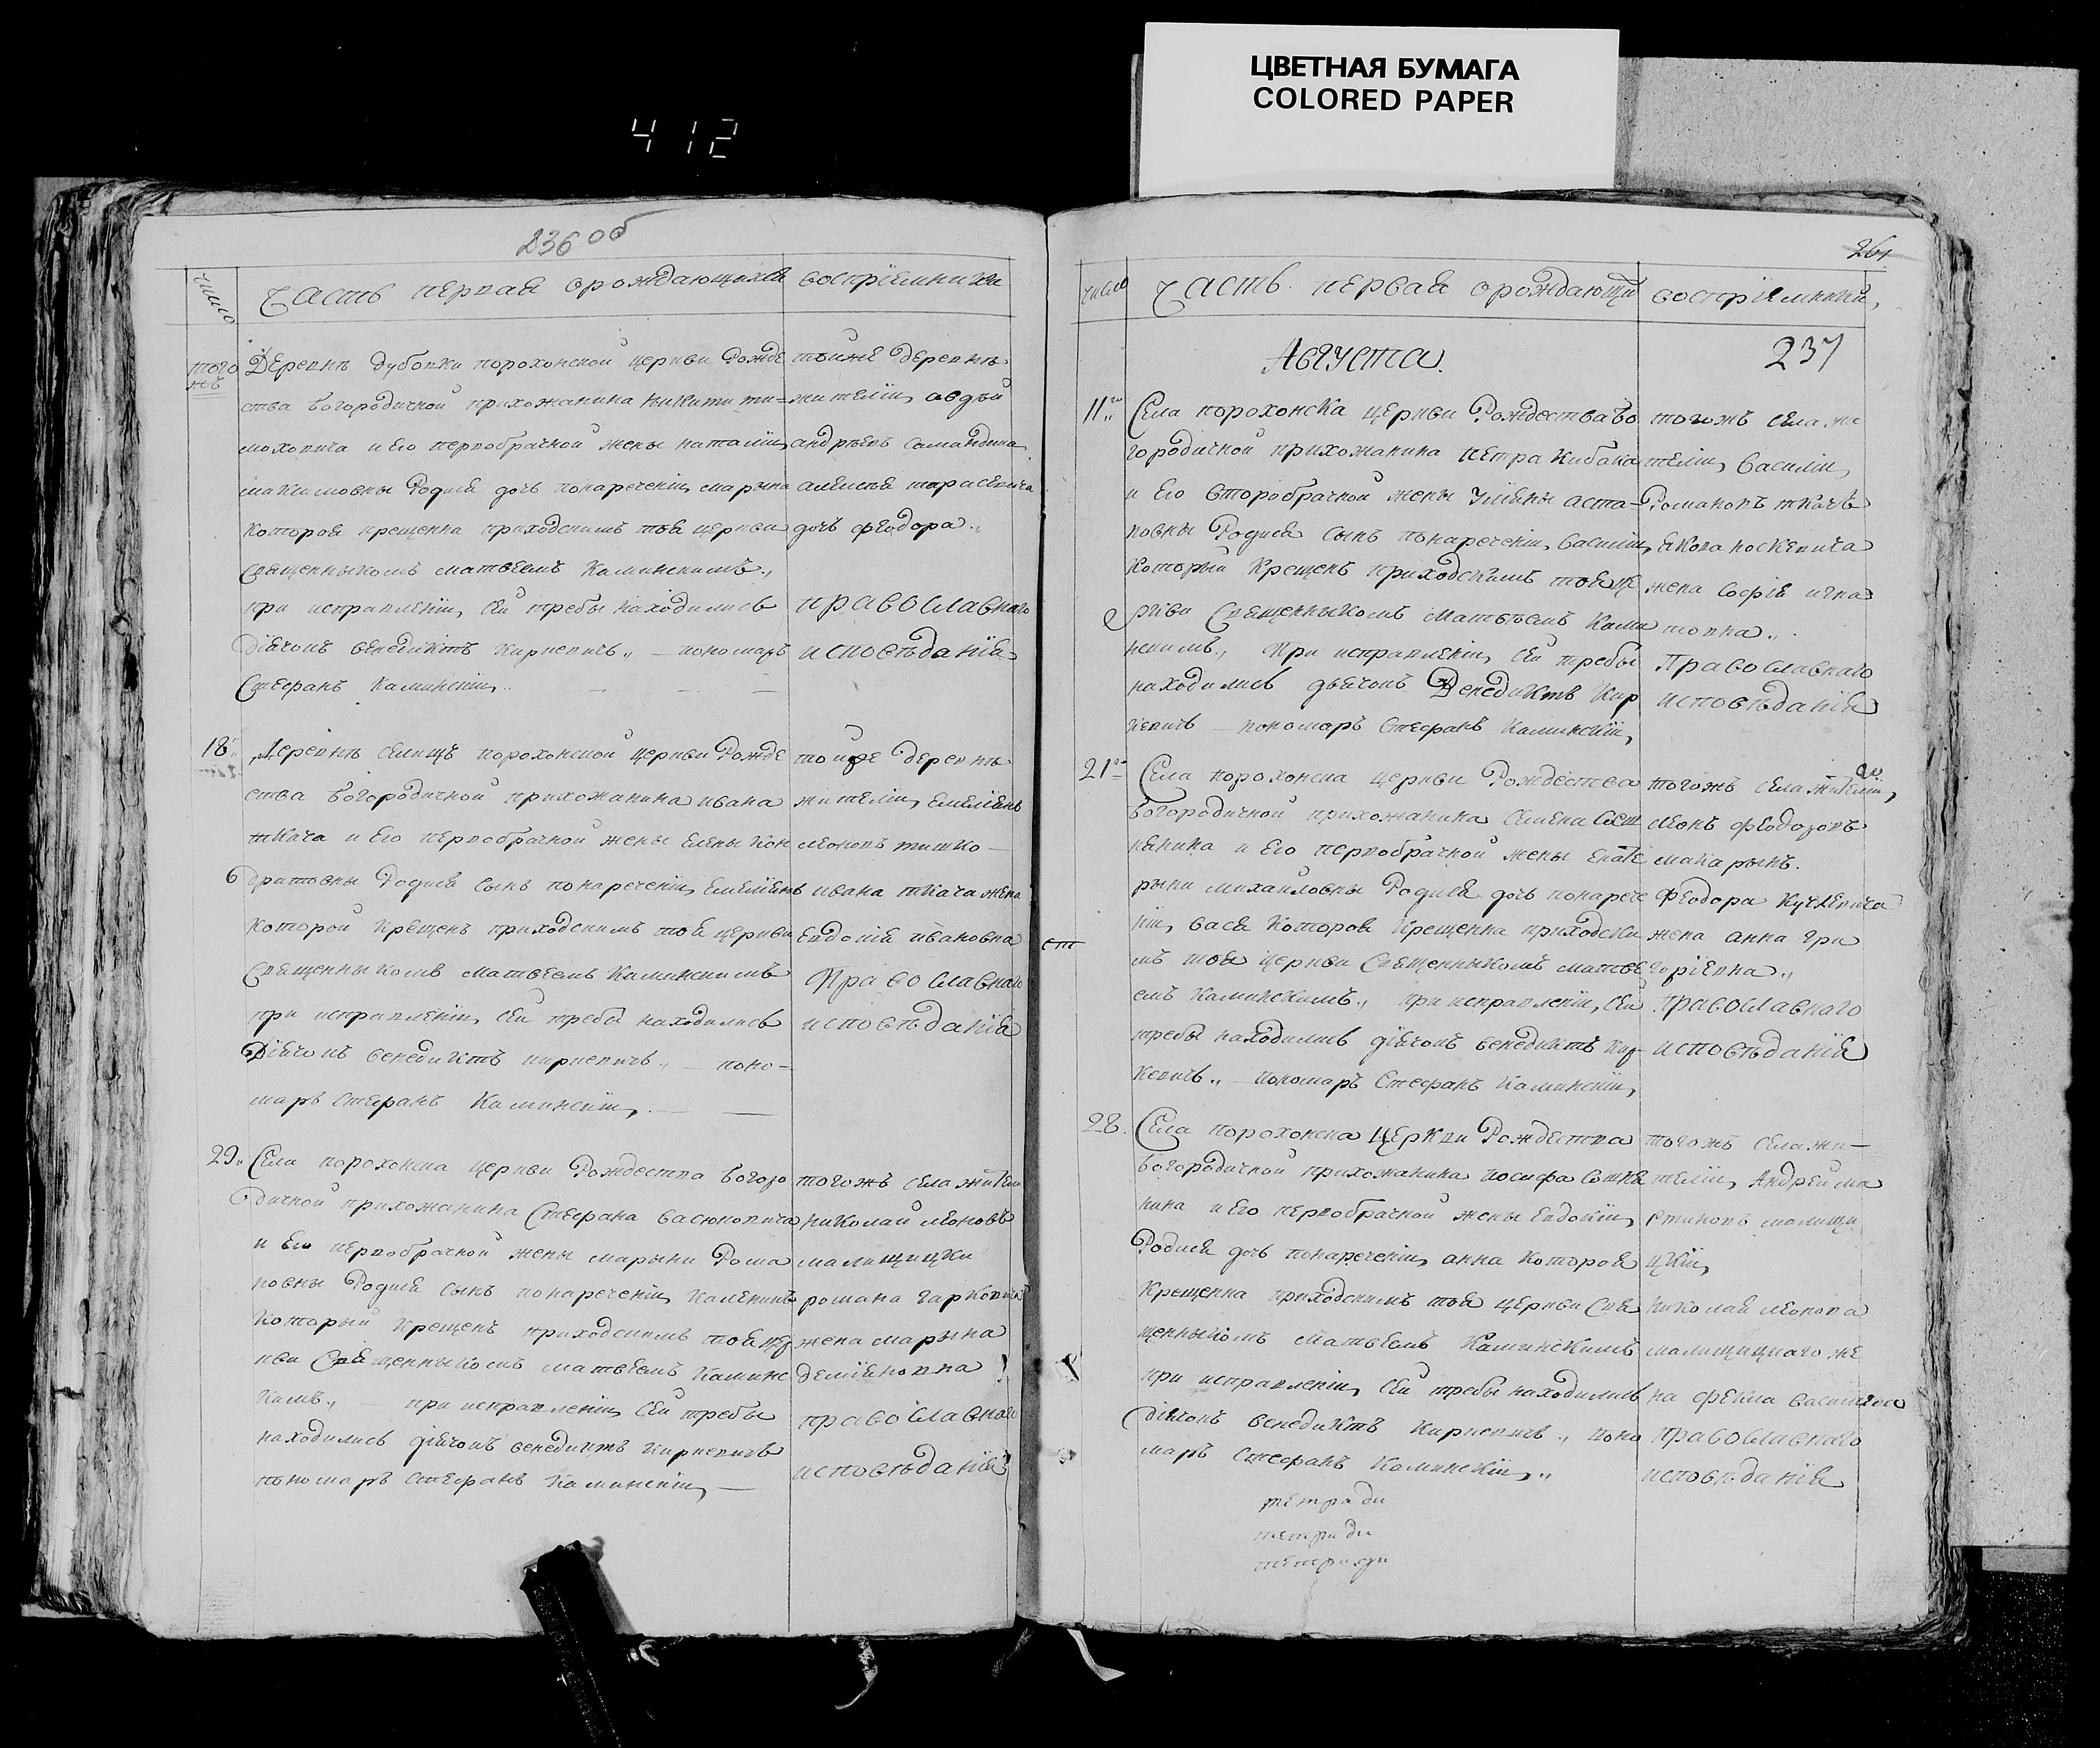 ЦВЕТНАЯ БУМАГА
COLORED PAPER
412
236 об
число
Часть первая орождающихся
воспріемники
того
жъ
Деревнѣ дубовки порохонской церкви Рожде
ства богородичной прихожанина Никиты ти-
моховича и его первобрачной жены наталіи
максимовны Родися дочь понареченіи марына
которая крещенна приходскимъ тоя церкви
священныкомъ матвеемъ Каминскимъ.,
при исправленіи сей требы находились
діячокъ венедиктъ киркевичъ., – пономаръ
Стефанъ Каминскіи..
тойже деревнѣ
жителіи авдѣй
андрѣевъ
алексея тарасевича
дочь феодора.,
православнаго
исповѣданія
18
Деревнѣ селищъ порохонской церкви Рожде
ства богородичной прихожанина ивана
ткача и его первобрачной жены елены кон
дратовны Родися сынъ понареченіи емеліянъ
которой крещенъ приходскимъ тоя церкви
священныкомъ матвеемъ Каминскимъ
при исправленіи сей требы находились
Діячокъ венедиктъ киркевичъ., – поно-
маръ Стефанъ Каминскіи,
тойже деревнѣ
жителіи емеліянъ
леоновъ тишко
ивана ткача жена
евдокія ивановна
Православнаго
исповѣданія
29.,
Села порохонска церкви Рождества богоро
дичной прихожанина Стефана васюковича
и его первобрачной жены марыны Рома
новны Родися сынъ понареченіи каленикъ
который крещенъ приходскимъ тоя цер
кви Священныкомъ матвеемъ Каминс
кимъ., при исправленіи сей требы
находились діячокъ венедиктъ киркевичъ
пономаръ стефанъ Каминскіи,
тогожъ села жители
николай леоновъ
малищицки
романа гарковича
жена марына
деміяновна
православнаго
исповѣданія
261
число
Часть первая орождающи
воспріемники,
Августа.
237
11.го
Села порохонска церкви Рождества бо
городичной прихожанина петра кибака
и его второбрачной жены уліяны аста-
повны Родися сынъ понареченіи василіи,
который крещенъ приходскимъ тоя це
ркви Священныкомъ Матвѣемъ Камин
скимъ., При исправленіи сей требы
находились дьячокъ Венедиктъ Кир
кевичъ – пономаръ Стефанъ Каминскіи,
тогожъ села жи
теліи, василіи,
Романовъ ткачъ
якова носкевича
жена софія игна
товна.,
Православнаго
исповѣданія
21го
Села порохонска церкви Рождества
богородичной прихожанина семена
и его первобрачной жены екате
рыни михайловны Родися дочь понарече
ніи, вася которая крещенна приходски
мъ тоя церкви священныкомъ матве
емъ Каминскимъ., при исправленіи, сей
требы находились діячокъ венедиктъ кир-
кевичъ., – пономаръ Стефанъ Каминскіи,
тогожъ села жителіи,
леонъ феодоровъ
макарынъ.
Феодора кучкевича
жена анна гри
горіевна.,
православнаго
исповѣданія
ст
28.
Села порохонска церкви Рождества
богородичной прихожанина иосифа
и его первобрачной жены евдокіи,
Родися дочь понареченіи, анна которая
крещенна приходскимъ тоя церкви свя
щенныкомъ матвеемъ Каминскимъ
при исправленіи сей требы находились
діячокъ венедиктъ Киркевичъ., поно
маръ Стефанъ Каминскіи,.,
тогожъ села жи–
теліи, Андрей ма
ртиновъ малищи
цкіи,
николая леонова
малищицкаго же
на
православнаго
исповѣданія
тетради
тетради
тетради